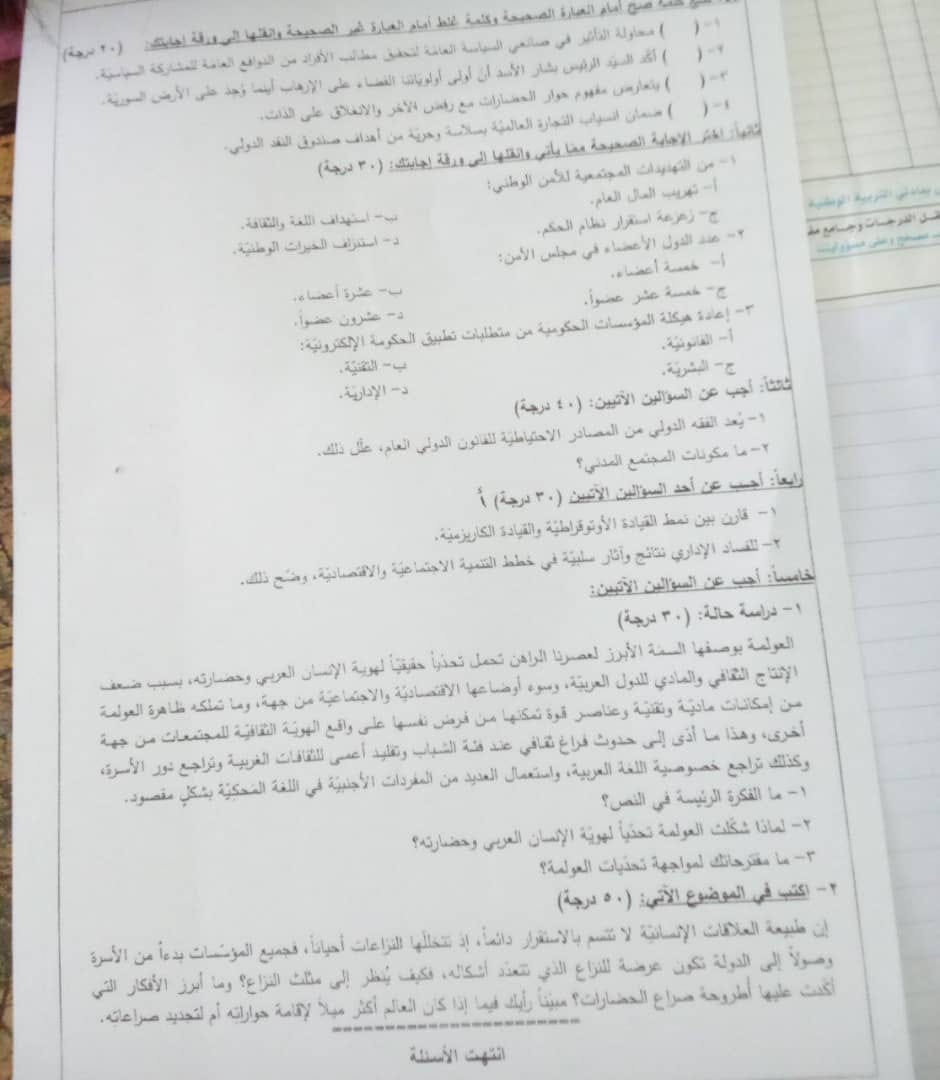 ضع كلمة صح أمام العبارة الصحيحة وكلمة غلط أمام العبارة غير الصحيحة وانقلها إلى ورقة إجابتك: (٢٠ درجة)
١- ( ) محاولة التأثير في صانعي السياسة العامة لتحقيق مطالب الأفراد من الدوافع العامة للمشاركة السياسيّة.
٢- ( ) أكّد السيّد الرئيس بشار الأسد أنّ أولى أولوياتنا القضاء على الإرهاب أينما وُجد على الأرض السوريّة.
٣- ( ) يتعارض مفهوم حوار الحضارات مع رفض الآخر والانغلاق على الذات.
٤- ( ) ضمان انسياب التجارة العالميّة بسلاسة وحريّة من أهداف صندوق النقد الدولي.
ثانياً: اختر الإجابة الصحيحة ممّا يأتي وانقلها إلى ورقة إجابتك: (٣٠ درجة)
١- من التهديدات المجتمعية للأمن الوطني:
أ- تهريب المال العام. ب- استهداف اللغة والثقافة.
ج- زعزعة استقرار نظام الحكم. د- استنزاف الخيرات الوطنيّة.
٢- عدد الدول الأعضاء في مجلس الأمن:
أ- خمسة أعضاء. ب- عشرة أعضاء.
ج- خمسة عشر عضواً. د- عشرون عضواً.
٣- إعادة هيكلة المؤسسات الحكومية من متطلبات تطبيق الحكومة الإلكترونيّة:
أ- القانونيّة. ب- التقنيّة.
ج- البشريّة. د- الإداريّة.
ثالثاً: أجب عن السؤالين الآتيين: (٤٠ درجة)
١- يُعد الفقه الدولي من المصادر الاحتياطيّة للقانون الدولي العام، علّل ذلك.
٢- ما مكونات المجتمع المدني؟
رابعاً: أجب عن أحد السؤالين الآتيين (٣٠ درجة)
١- قارن بين نمط القيادة الأوتوقراطيّة والقيادة الكاريزميّة.
٢- للفساد الإداري نتائج وآثار سلبيّة في خطط التنمية الاجتماعيّة والاقتصاديّة، وضّح ذلك.
خامساً: أجب عن السؤالين الآتيين:
١- دراسة حالة: (٣٠ درجة)
العولمة بوصفها السمة الأبرز لعصرنا الراهن تحمل تحدّياً حقيقيّاً لهوية الإنسان العربي وحضارته، بسبب ضعف
الإنتاج الثقافي والمادي للدول العربيّة، وسوء أوضاعها الاقتصاديّة والاجتماعيّة من جهة، وما تملكه ظاهرة العولمة
من إمكانات ماديّة وتقنيّة وعناصر قوة تمكنها من فرض نفسها على واقع الهويّة الثقافيّة للمجتمعات من جهة
أخرى، وهذا ما أدّى إلى حدوث فراغ ثقافي عند فئة الشباب وتقليد أعمى للثقافات الغربية وتراجع دور الأسرة،
وكذلك تراجع خصوصية اللغة العربية، واستعمال العديد من المفردات الأجنبيّة في اللغة المَحكيّة بشكلٍ مقصود.
١- ما الفكرة الرئيسة في النص؟
٢- لماذا شكّلت العولمة تحدّياً لهويّة الإنسان العربي وحضارته؟
٣- ما مقترحاتك لمواجهة تحدّيات العولمة؟
٢- اكتب في الموضوع الآتي: (٥٠ درجة)
إن طبيعة العلاقات الإنسانيّة لا تتسم بالاستقرار دائماً، إذ تتخلّلها النزاعات أحياناً، فجميع المؤسّسات بدءاً من الأسرة
وصولاً إلى الدولة تكون عرضة للنزاع الذي تتعدّد أشكاله، فكيف يُنظر إلى مثلث النزاع؟ وما أبرز الأفكار التي
أكّدت عليها أطروحة صراع الحضارات؟ مبيّناً رأيك فيما إذا كان العالم أكثر ميلاً لإقامة حواراته أم لتجديد صراعاته.
انتهت الأسئلة
التربية الوطنية
الدرجات وجامع